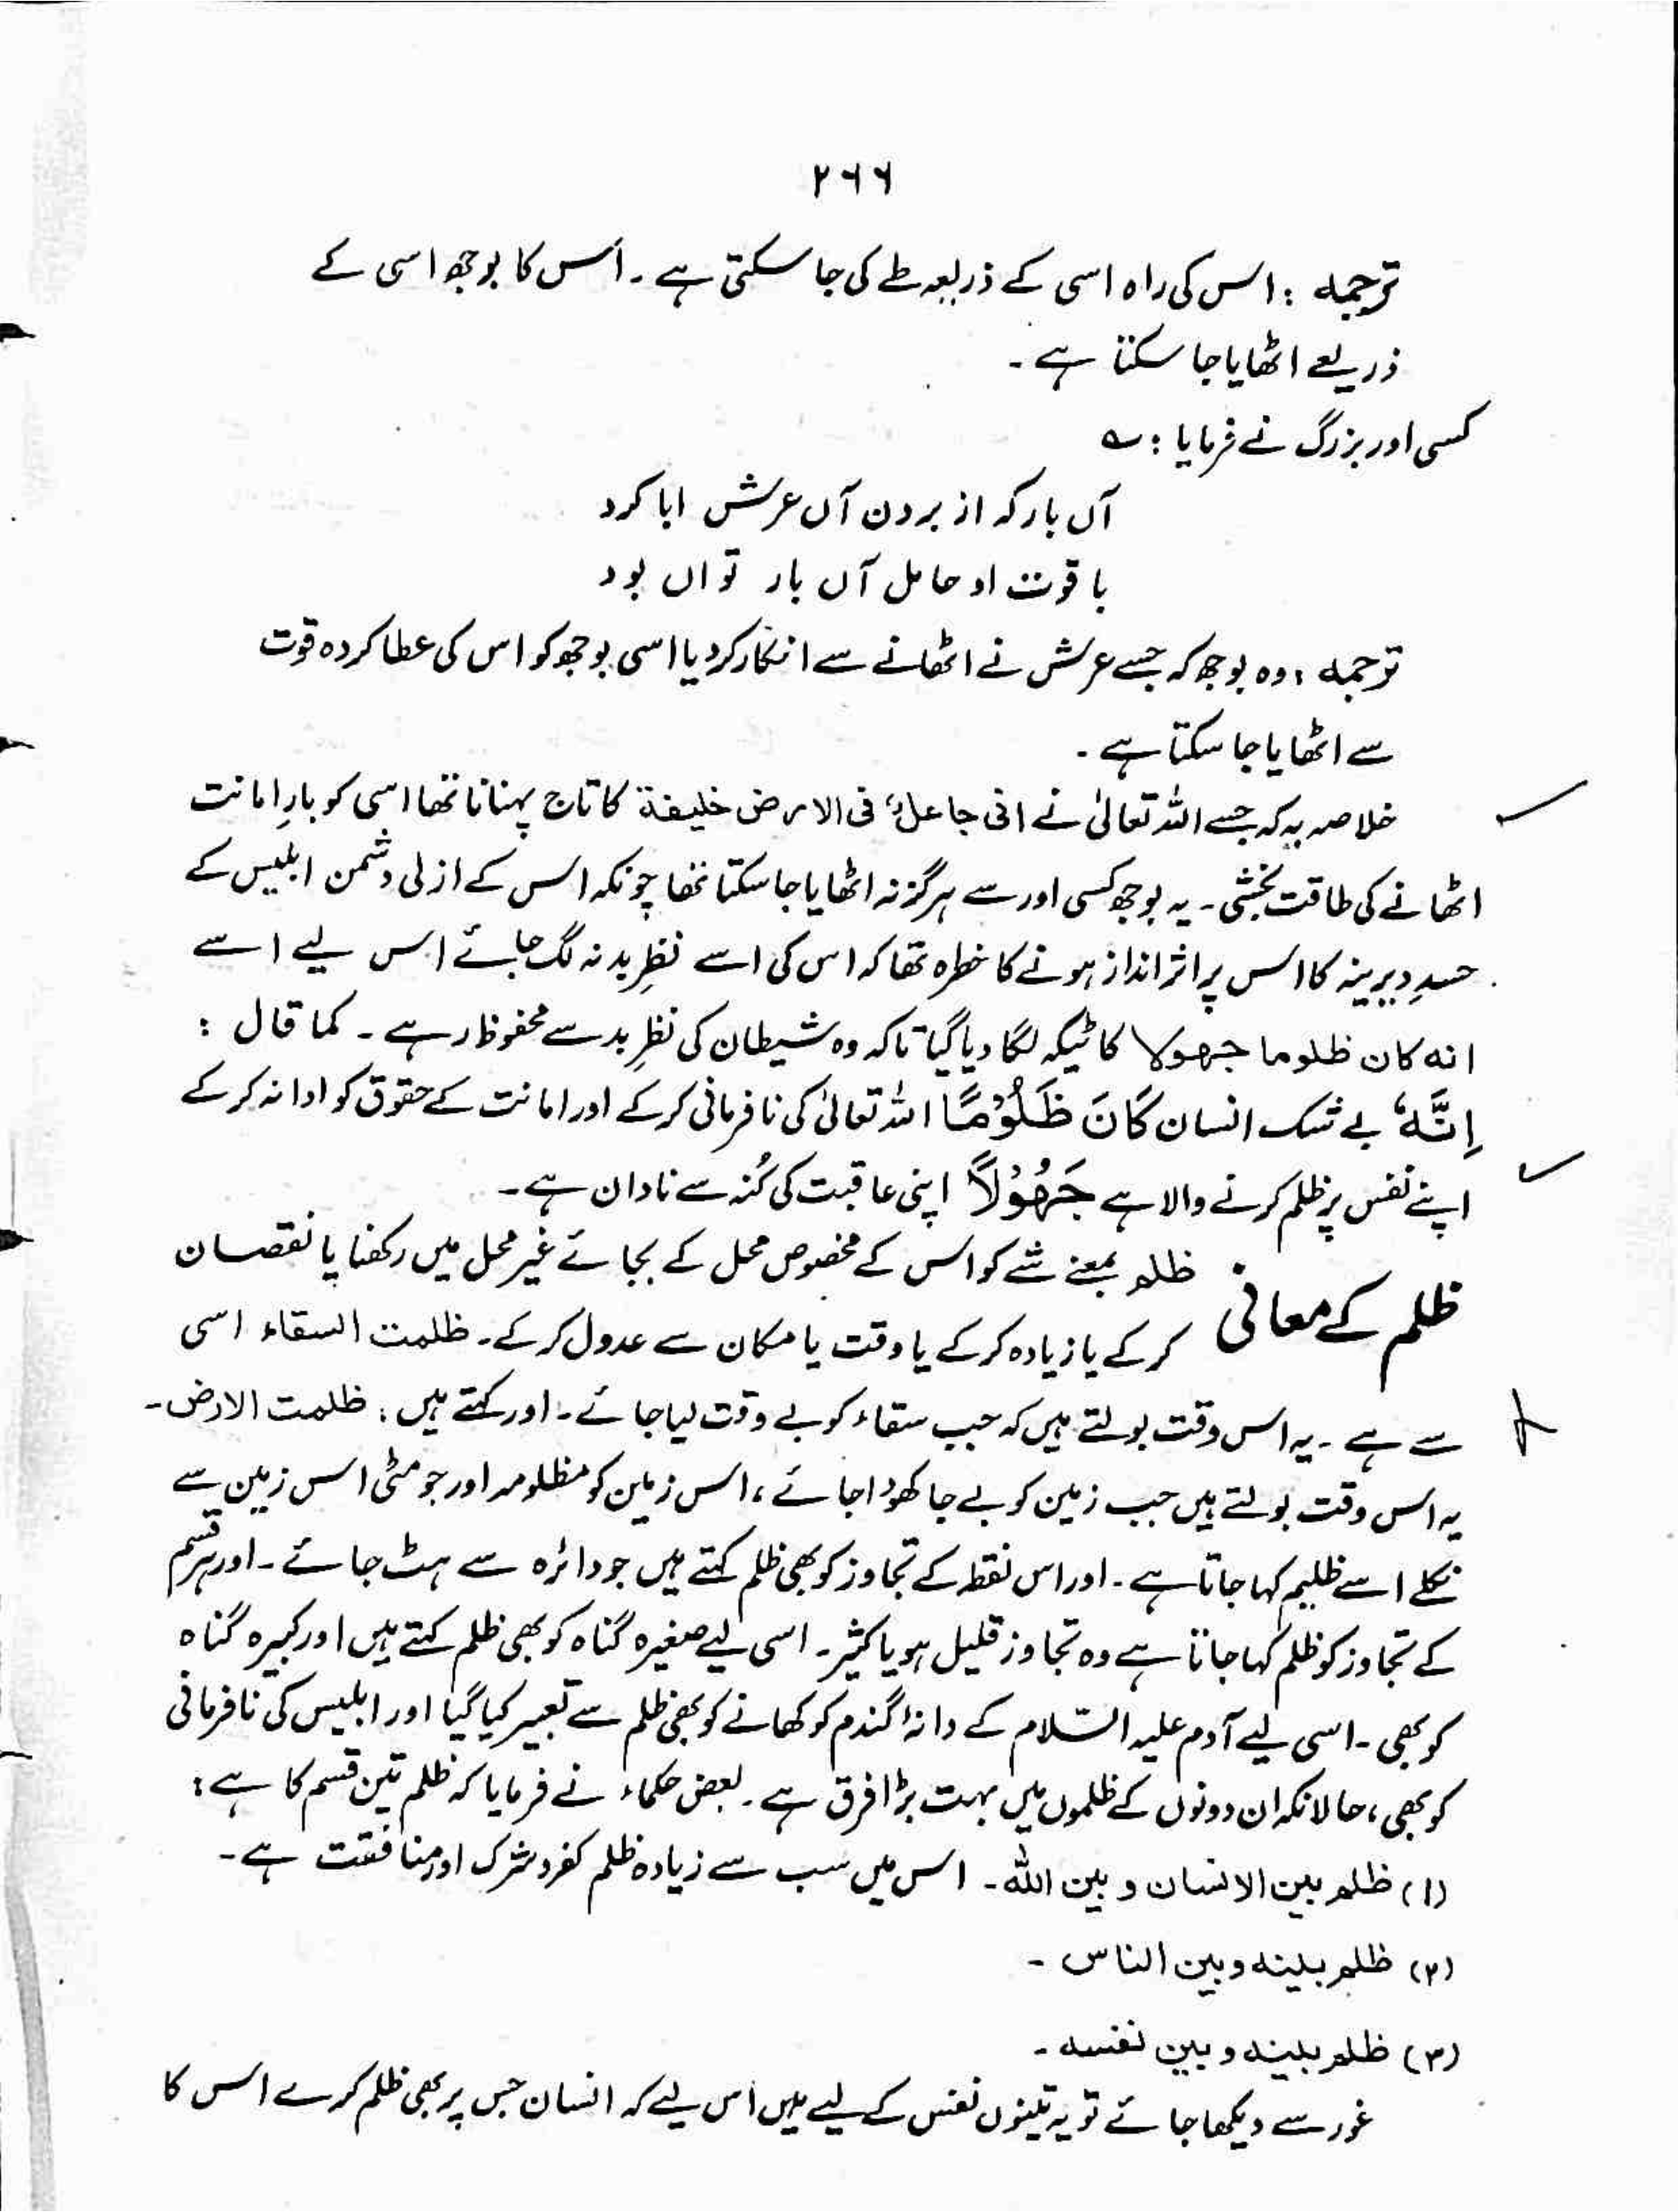 ۲۶۶
ترجمہ : اس کی راہ اسی کے ذریعہ طے کی جا سکتی ہے۔ اُس کا بوجھ اسی کے
ذریعے اٹھایا جا سکتا ہے۔
کسی اور بزرگ نے فرمایا : ؎
آں بار کہ از بردن آں عرش ابا کرد
با قوت او حامل آں بار تواں بود
ترجمہ : وہ بوجھ کہ جسے عرش نے اٹھانے سے انکار کر دیا اسی بوجھ کو اس کی عطا کردہ قوت
سے اٹھایا جا سکتا ہے۔
خلاصہ یہ کہ جسے اللہ تعالیٰ نے انی جاعلٌ فی الارض خلیفۃ کا تاج پہنانا تھا اسی کو بارِ امانت
اٹھانے کی طاقت بخشی۔ یہ بوجھ کسی اور سے ہرگز نہ اٹھایا جا سکتا تھا چونکہ اس کے ازلی دشمن ابلیس کے
حسدِ دیرینہ کا اس پر اثر انداز ہونے کا خطرہ تھا کہ اس کی اسے نظرِ بد نہ لگ جائے اس لیے اسے
انہ کان ظلوما جھولا کا ٹیکہ لگا دیا گیا تاکہ وہ شیطان کی نظرِ بد سے محفوظ رہے۔ کما قال :
اِنَّہٗ بے شک انسان کَانَ ظَلُوْمًا اللہ تعالیٰ کی نافرمانی کر کے اور امانت کے حقوق کو ادا نہ کر کے
اپنے نفس پر ظلم کرنے والا ہے جَھُوْلًا اپنی عاقبت کی کُنہ سے نادان ہے۔
ظلم کے معانی ظلم بمعنے شے کو اس کے مخصوص محل کے بجائے غیر محل میں رکھنا یا نقصان
کر کے یا زیادہ کر کے یا وقت یا مکان سے عدول کر کے۔ ظلمت السقاء اسی
سے ہے۔ یہ اس وقت بولتے ہیں کہ جب سقاء کو بے وقت لیا جائے۔ اور کہتے ہیں : ظلمت الارض۔
یہ اس وقت بولتے ہیں جب زمین کو بے جا کھودا جائے، اس زمین کو مظلومہ اور جو مٹی اس زمین سے
نکلے اسے ظلیم کہا جاتا ہے۔ اور اس نقطہ کے تجاوز کو بھی ظلم کہتے ہیں جو دائرہ سے ہٹ جائے۔ اور ہر قسم
کے تجاوز کو ظلم کہا جاتا ہے وہ تجاوز قلیل ہو یا کثیر۔ اسی لیے صغیرہ گناہ کو بھی ظلم کہتے ہیں اور کبیرہ گناہ
کو بھی۔ اسی لیے آدم علیہ السّلام کے دانۂ گندم کو کھانے کو بھی ظلم سے تعبیر کیا گیا اور ابلیس کی نافرمانی
کو بھی، حالانکہ ان دونوں کے ظلموں میں بہت بڑا فرق ہے۔ بعض حکماء نے فرمایا کہ ظلم تین قسم کا ہے :
(۱) ظلم بین الانسان و بین اللہ۔ اس میں سب سے زیادہ ظلم کفر و شرک اور منافقت ہے۔
(۲) ظلم بینہ و بین الناس ۔
(۳) ظلم بینہ و بین نفسہ ۔
غور سے دیکھا جائے تو یہ تینوں نفس کے لیے ہیں اس لیے کہ انسان جس پر بھی ظلم کرے اس کا